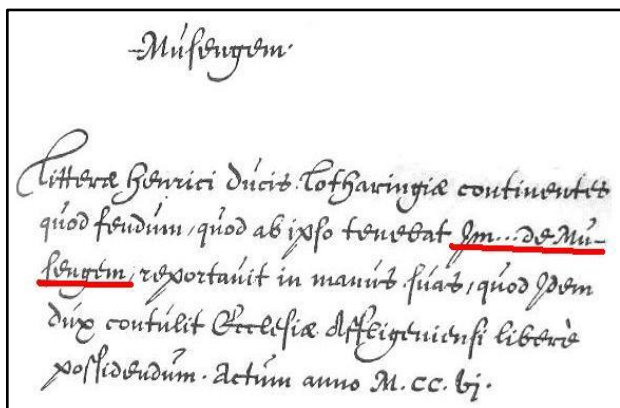 Musengem.
Litteræ Henrici Ducis Lotharingiæ continentes
quod feudum, quod ab ipso tenebat Jm... de Mu-
sengem, reportauit in manus suas, quod Jdem
dux contulit Ecclesiæ Affligeniensi liberè
possidendum. Actum anno M. CC. vj.